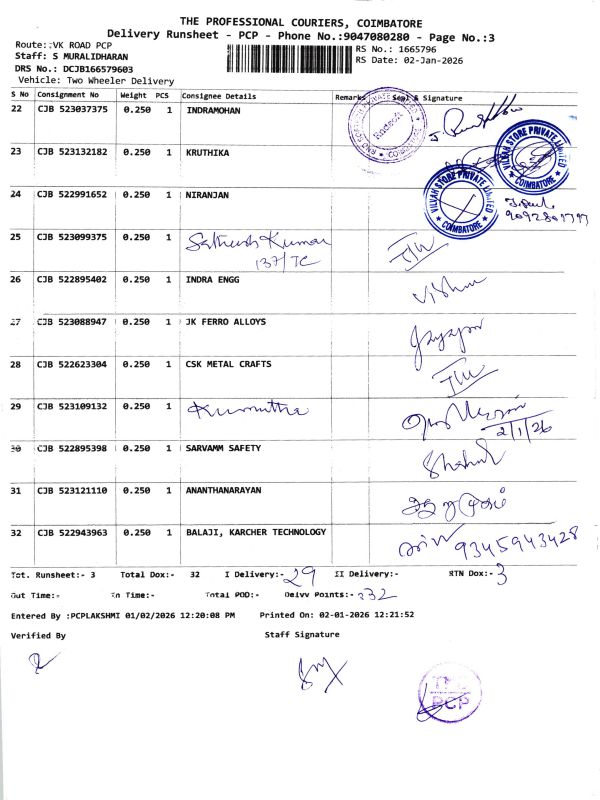 THE PROFESSIONAL COURIERS, COIMBATORE
Delivery Runsheet - PCP - Phone No.:9047080280 - Page No.:3
Route::VK ROAD PCP
Staff: S MURALIDHARAN
DRS No.: DCJB166579603
Vehicle: Two Wheeler Delivery
RS No.: 1665796
RS Date: 02-Jan-2026
S No Consignment No Weight PCS Consignee Details Remarks Seal & Signature
22 CJB 523037375 0.250 1 INDRAMOHAN
23 CJB 523132182 0.250 1 KRUTHIKA
VILVAH STORE PRIVATE LIMITED
COIMBATORE
24 CJB 522991652 0.250 1 NIRANJAN
VILVAH STORE PRIVATE LIMITED
COIMBATORE
25 CJB 523099375 0.250 1 Sathish Kumar
137/TC
26 CJB 522895402 0.250 1 INDRA ENGG
27 CJB 523088947 0.250 1 JK FERRO ALLOYS
28 CJB 522623304 0.250 1 CSK METAL CRAFTS
29 CJB 523109132 0.250 1 Kumutha 2/1/26
30 CJB 522895398 0.250 1 SARVAMM SAFETY
31 CJB 523121110 0.250 1 ANANTHANARAYAN
32 CJB 522943963 0.250 1 BALAJI, KARCHER TECHNOLOGY 9345943428
Tot. Runsheet:- 3 Total Dox:- 32 I Delivery:- 29 II Delivery:- RTN Dox:- 3
Out Time:- In Time:- Total POD:- Delvv Points:-
Entered By :PCPLAKSHMI 01/02/2026 12:20:08 PM Printed On: 02-01-2026 12:21:52
Verified By Staff Signature
PCP